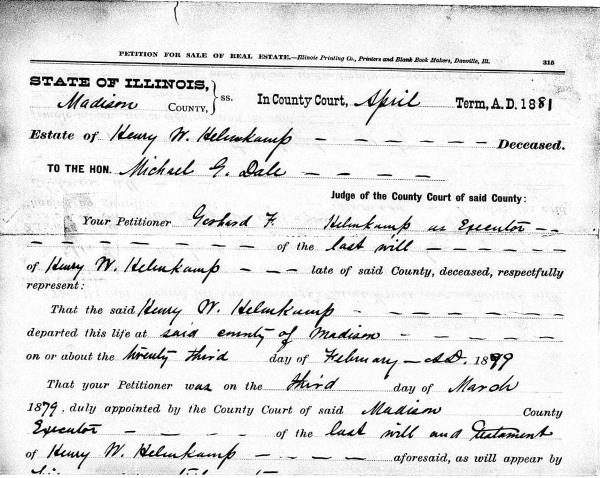 PETITION FOR SALE OF REAL ESTATE.—Illinois Printing Co., Printers and Blank Book Makers, Danville, Ill. 315
STATE OF ILLINOIS, } ss. In County Court, April Term, A. D. 1881
Madison COUNTY,
Estate of Henry W. Helmkamp — — — — — Deceased.
TO THE HON. Michael G. Dale — — — —
Judge of the County Court of said County:
Your Petitioner Gerhard F. Helmkamp as Executor — —
— — — — — — — — — of the last will — — — —
of Henry W. Helmkamp — — — late of said County, deceased, respectfully
represent:
That the said Henry W. Helmkamp — — — — — — —
departed this life at said county of Madison — — — — —
on or about the twenty third day of February — A.D. 1879
That your Petitioner was on the third day of March
1879, duly appointed by the County Court of said Madison County
Executor — — — — — of the last will and testament
of Henry W. Helmkamp — — — — aforesaid, as will appear by